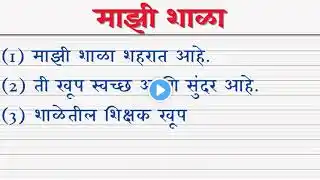 माझी शाळा
(1) माझी शाळा शहरात आहे.
(2) ती खूप स्वच्छ आणि सुंदर आहे.
(3) शाळेतील शिक्षक खूप